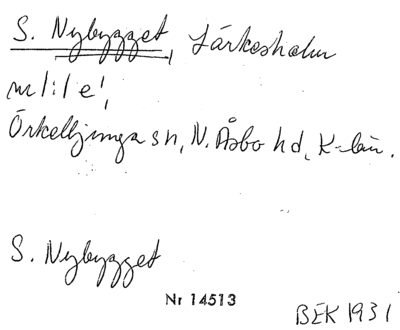 S. Nybygget, Lärkesholm
m/:/e',
Örkelljunga sn, N. Åsbo hd, K-län.
S. Nybygget
Nr 14513
BEK 1931